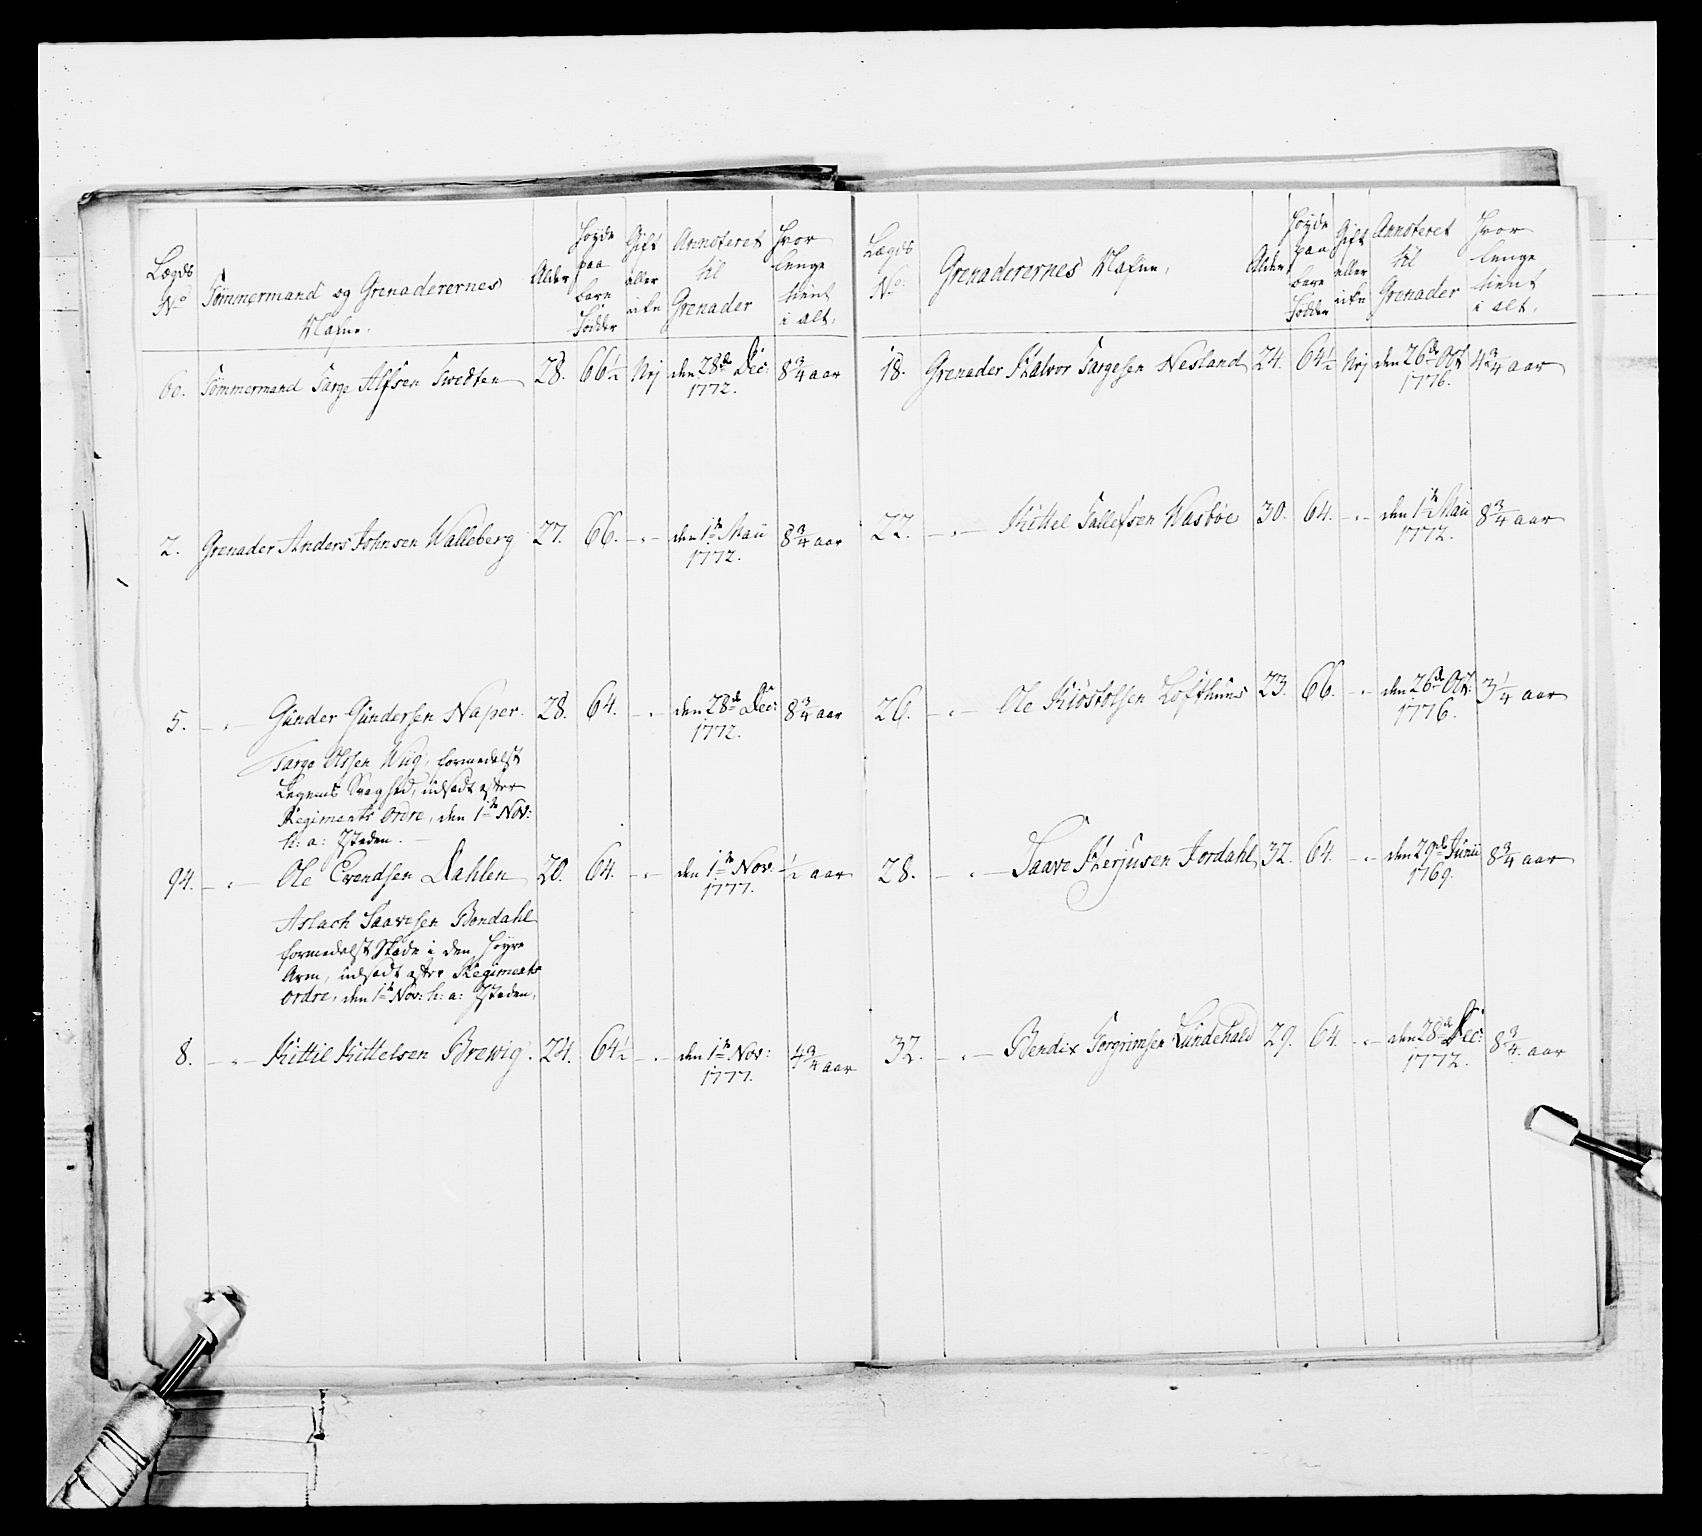 Lægds No
Tømmermand og Grenaderernes Nafne.
Alder
Høyde paa bare Fødder
Gift eller icke
Annoteret til Grenader
Hvor lenge tient i alt.
60. Tømmermand Targe Alfsen Twedten 28. 66½ Nej den 28de Dec: 1772. 8¾ aar
2. Grenader Anders Johnsen Walleberg 27. 66. -"- den 1te Maii 1772. 8¾ aar
5. -"- Gunder Gundersen Naper. 28. 64. -"- den 28de Dec: 1772. 8¾ aar
Targe Olssen Wiig, formedelst
Legems Svaghed, udsadt efter
Regiments ordre, den 1te Nov:
h: a: Isteden.
94. -"- Ole Evendsen Dahlen 20. 64. -"- den 1te Nov: 1777. ½ aar
Aslach Saavesen Bondahl
formedelst Skade i den Høyre
Arm, udsadt efter Regiments
ordre, den 1te Nov: h: a: Isteden,
8. -"- Kittil Kittelsen Brewig. 24. 64½ -"- den 1te Nov: 1777. 4¾ aar
Lægds No.
Grenaderernes Nafne,
Alder
Høyde paa bare Fødder
Gift eller icke
Annoteret til Grenader
Hvor lenge tient i alt.
18. Grenader Halvor Targesen Nesland 24. 64½ Nej den 26de Oct 1776. 4¾ aar
22. -"- Kittel Tallefsen Wasbøe 30. 64. -"- den 1te Maii 1772. 8¾ aar
26. -"- Ole Kiøstolsen Lofthuus 23. 66. -"- den 26de Oct: 1776. 3¼ aar
28. -"- Saave Herjusen Jordahl 32. 64. -"- den 29de Junii 1769. 8¾ aar
32. -"- Bendix Torgrimsen Lundehald 29. 64. -"- den 28de Dec: 1772. 8¾ aar